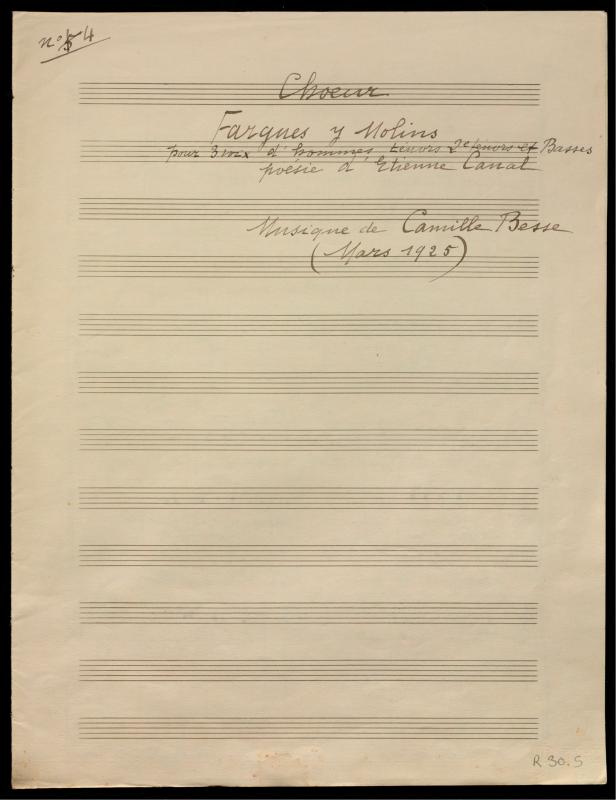 nº 54
Choeur
Fargues y Molins
pour 3 voix d'hommes ténors 2e ténors et Basses
poésie d'Etienne
Musique de Camille Besse
(Mars 1925)
R 30.5